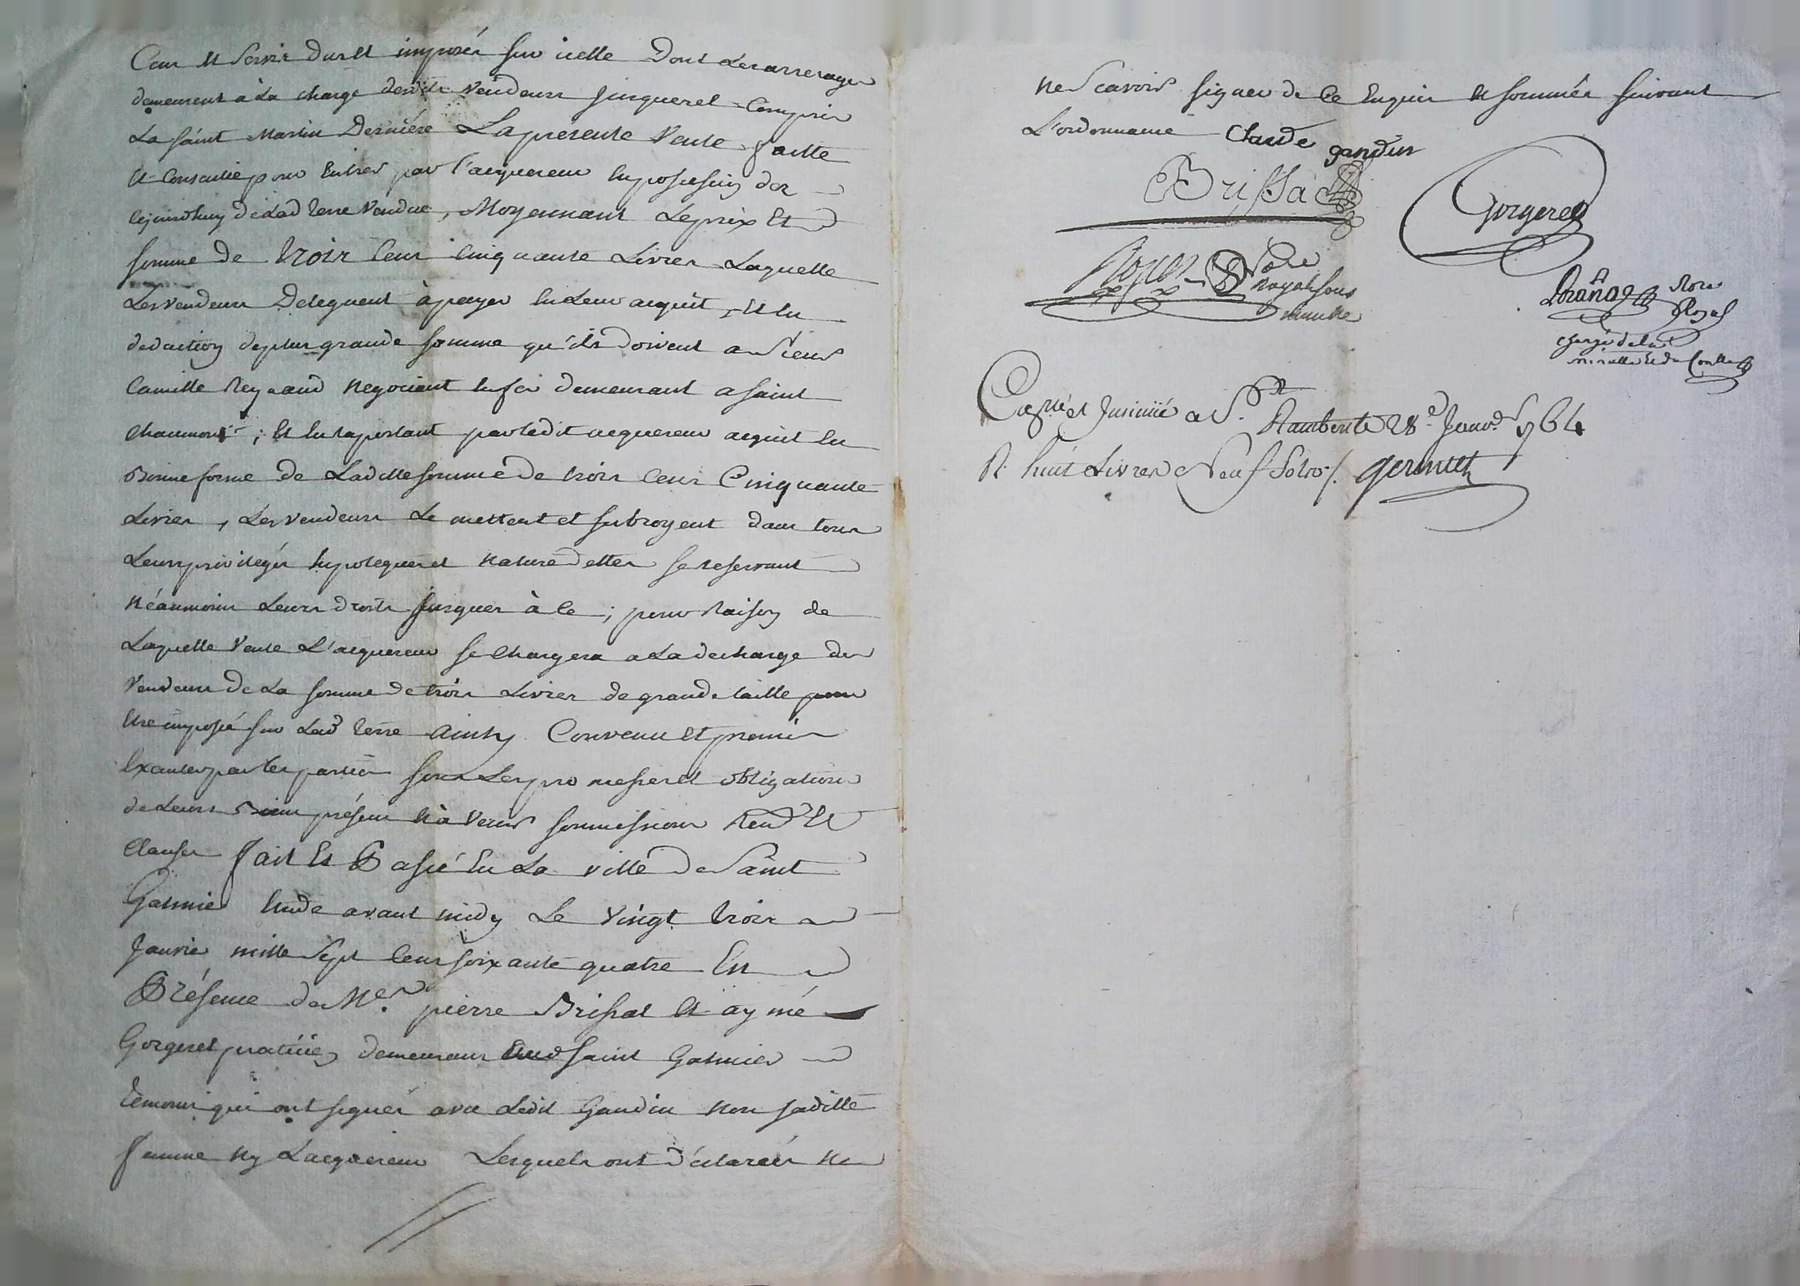 Cens et servis dus et imposés sur icelle dont les arrerages
demeurent à la charge desdits vendeurs jusques et compris
La saint Martin derniére La présente vente faitte
et consentie pour entrer par l'acquereur en possession dez
cejourdhuy de lad terre vendue, Moyennant le prix et
somme de trois cens cinquante Livres Laquelle
Les vendeurs deleguent à payer en leur acquit, et en
deduction de plus grande somme qu'ils doivent a sieur
Camille Reynaud negociant demeurant a saint
chaumont; et en raportant par ledit acquereur acquit en
Bonne forme de Laditte somme de trois cens Cinquante
Livres, Les vendeurs Le mettent et subrogent dans tous
Leurs privileges hypoteques et nature dettes se reservant
Néanmoins Leurs droits jusques à ce; pour Raison de
Laquelle vente L'acquereur se chargera a la decharge des
vendeurs de La somme de trois Livres de grande taille pour
etre imposé sur Lad terre ainsy Convenu et promis
Exanter par les parties sous Les promesses et obligations
de Leurs Biens présens et à venir soumissions Rend et
Clauses fait et Passé en La ville de Saint
Galmier Etude avant midy Le vingt trois
Janvier mille sept cens soixante quatre En
Présence de Mes. pierre Brissat et aymé
Gorgeret praticiens demeurans saint Galmier
témoins qui ont signés avec Ledit Gaudin non saditte
femme ny L'acquereur Lesquels ont déclarés ne
ne scavoir signer de ce Enquis et sommés suivant
L'ordonnance Claude gandin
Brissac
Gorgeret
Notre
Royal sous
Notre
Royal
chargé de la
minutte et du Contlle
Con.lé et Insinué a St.
Rambert le 28e Janvr 1764
R. huit Livres Neuf sols